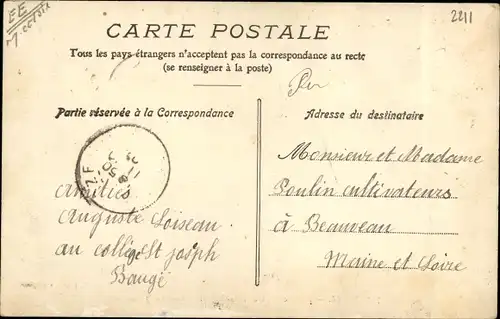 EE
2211
CARTE POSTALE
Tous les pays étrangers n'acceptent pas la correspondance au recto
(se renseigner à la poste)
Partie réservée à la Correspondance
Adresse du destinataire
Monsieur et Madame
Poulin cultivateurs
à Beauveau
Maine et Loire
amitiés
Auguste Loiseau
au collège St joseph
Baugé